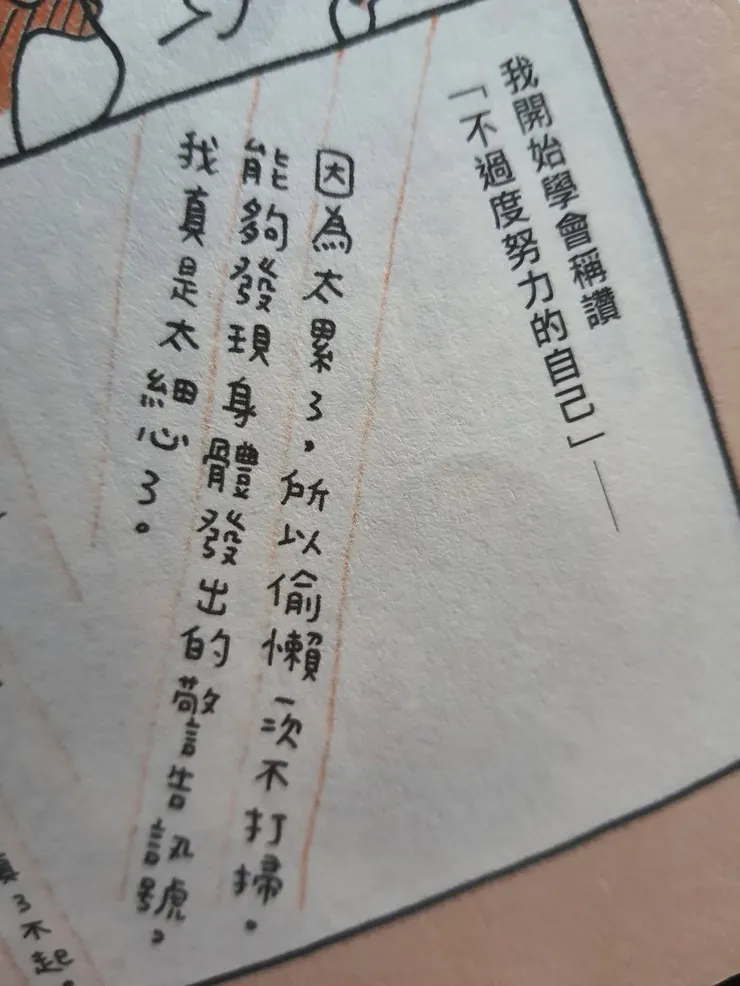 我開始學會稱讚
「不過度努力的自己」——
因為太累了,所以偷懶一次不打掃。
能夠發現身體發出的警告訊號,
我真是太細心了。
真了不起。